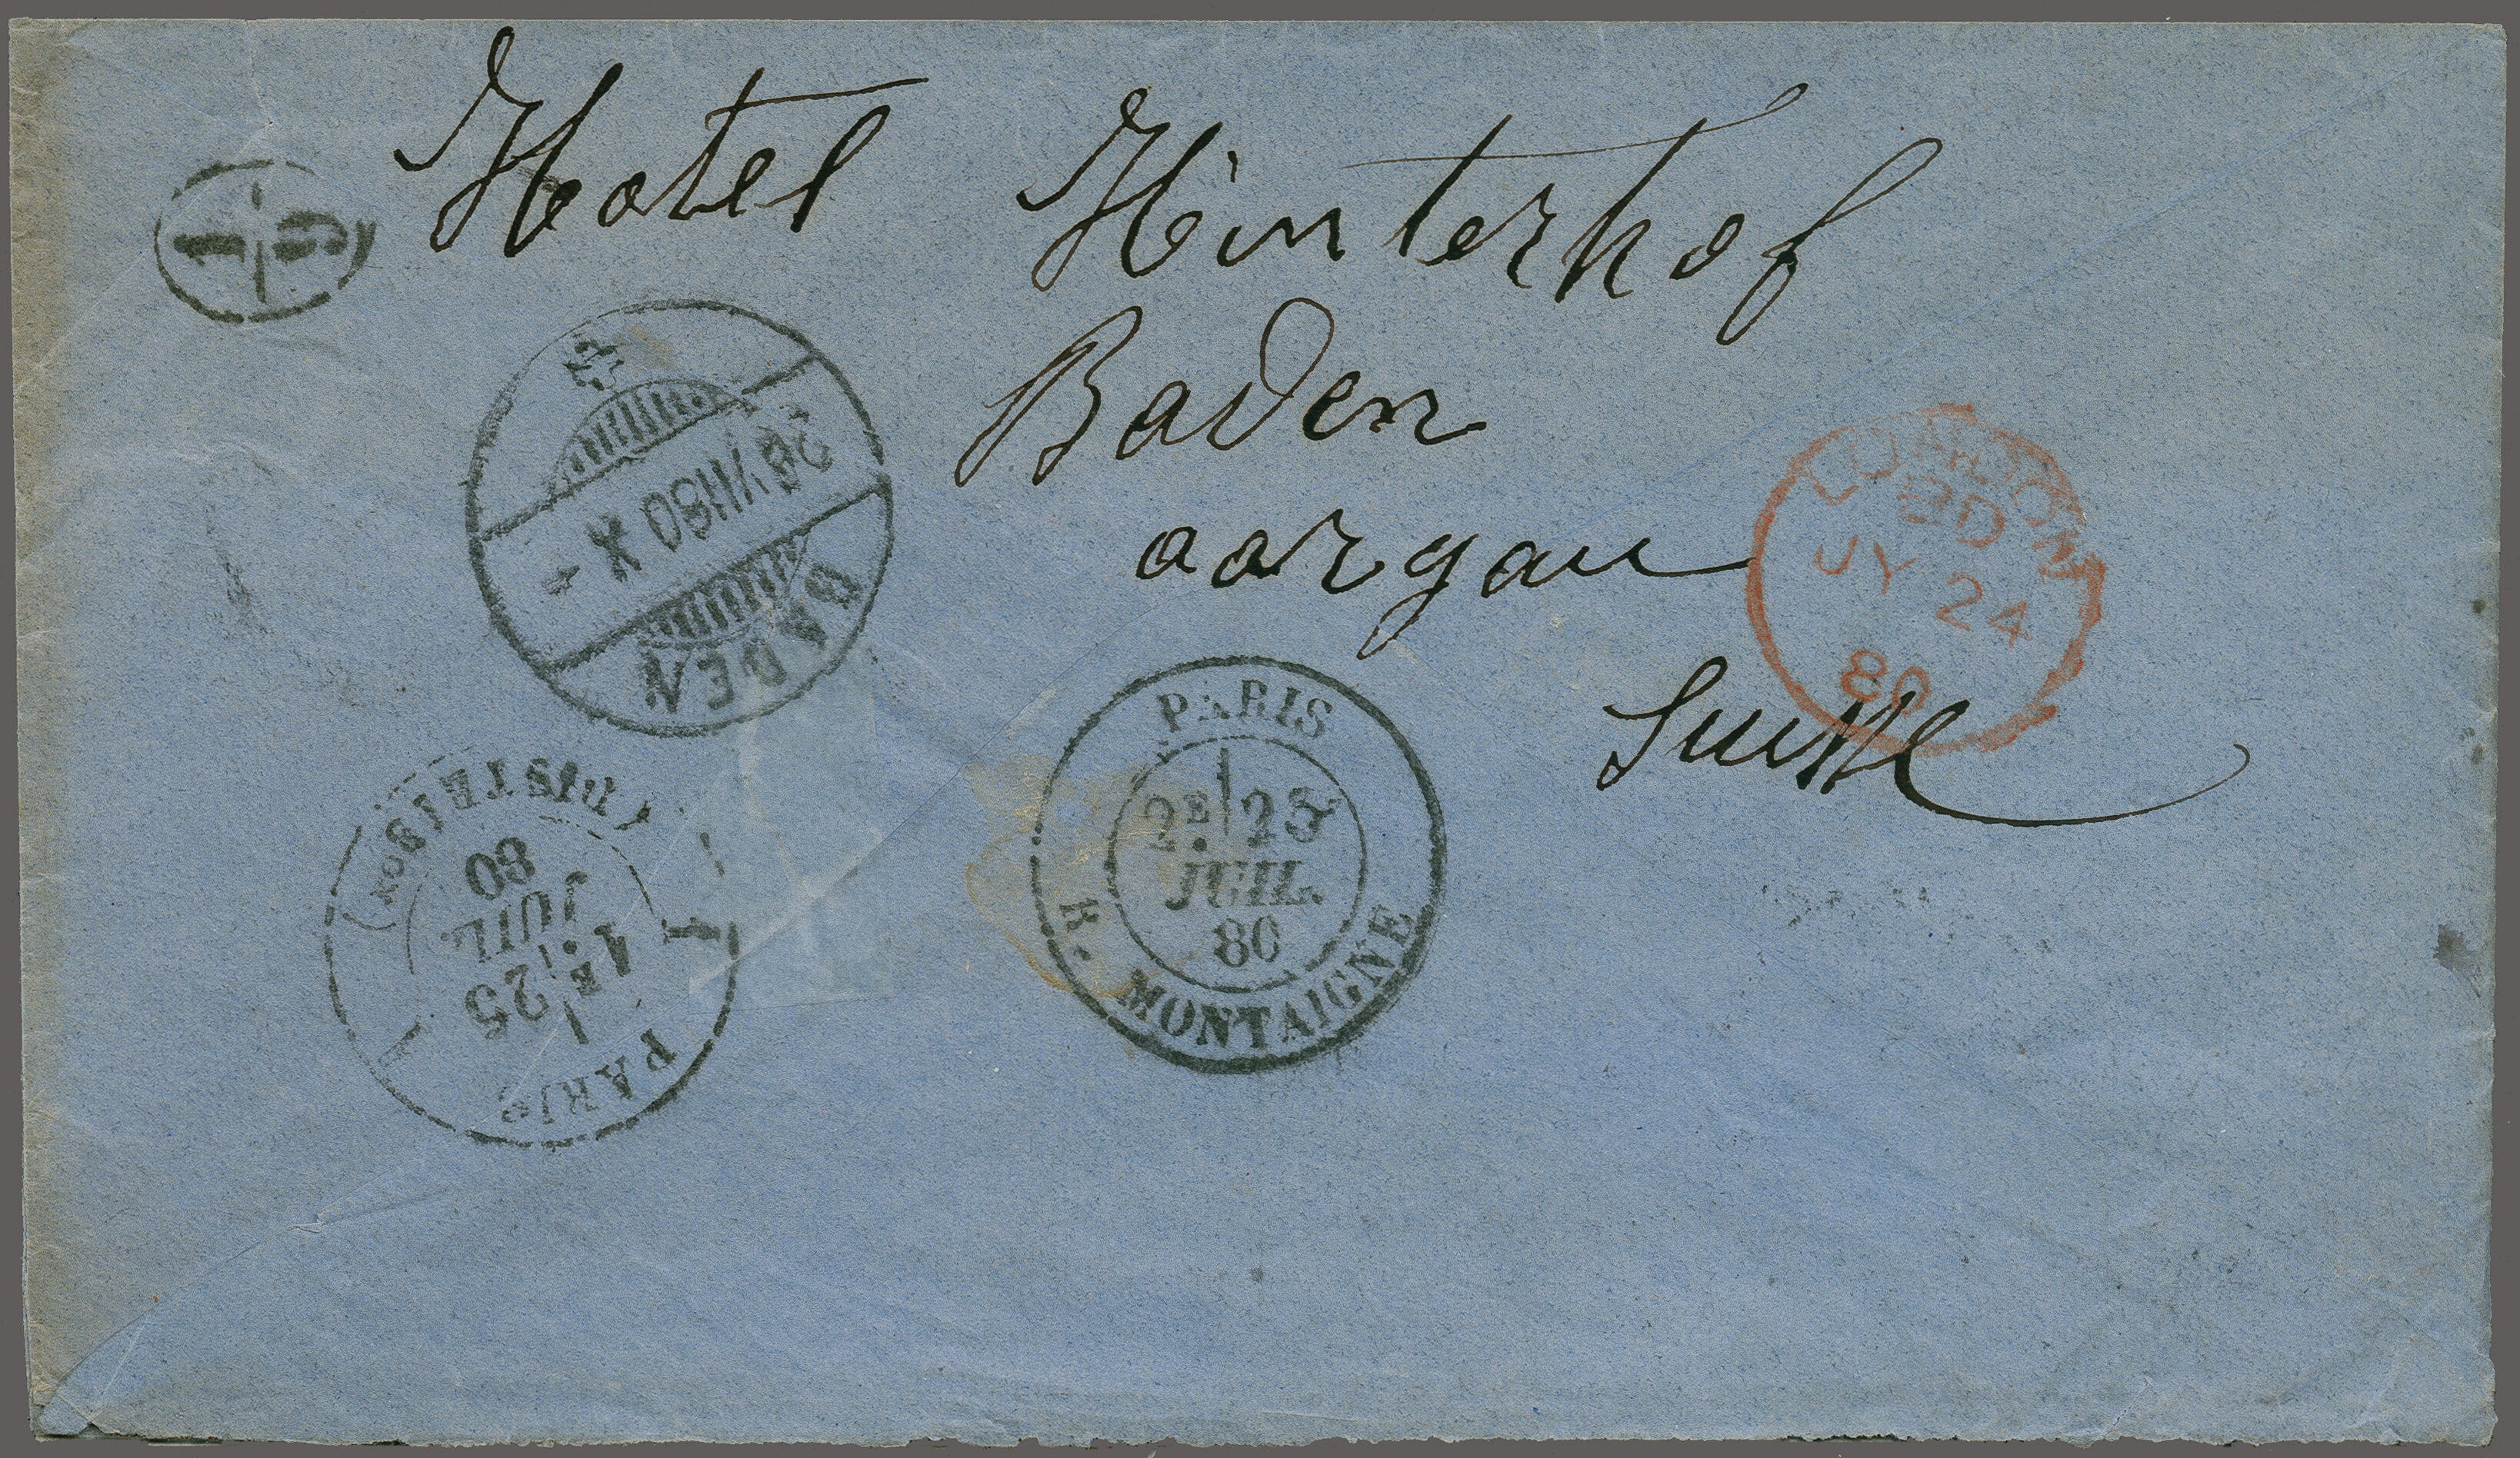 Hotel Hinterhof
Baden
aargau
Suisse
LONDON
JY 24
80
BADEN
VII 80 X -
PARIS
2E 25
JUIL.
80
R. MONTAIGNE
PARIS
1E 25
JUIL
80
(DISTRIBON)